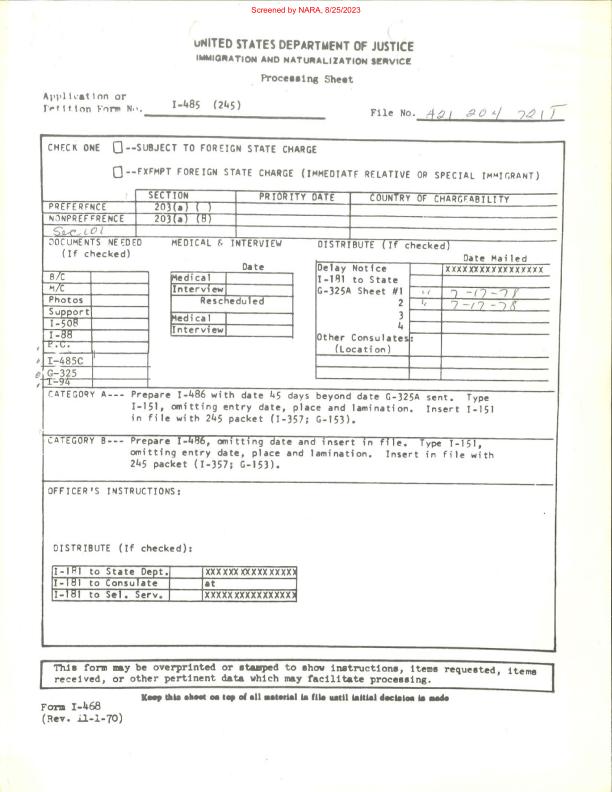 Screened by NARA, 8/25/2023
UNITED STATES DEPARTMENT OF JUSTICE
IMMIGRATION AND NATURALIZATION SERVICE
Processing Sheet
Application or
Petition Form No. I-485 (245)
File No. A21 204 721
CHECK ONE --SUBJECT TO FOREIGN STATE CHARGE
--EXEMPT FOREIGN STATE CHARGE (IMMEDIATE RELATIVE OR SPECIAL IMMIGRANT)
SECTION PRIORITY DATE COUNTRY OF CHARGEABILITY
PREFERENCE 203(a) ( )
NONPREFERENCE 203(a) (8)
Sec 101
DOCUMENTS NEEDED MEDICAL & INTERVIEW DISTRIBUTE (If checked)
(If checked)
Date Date Mailed
B/C
M/C
Photos
Support
I-508
I-88
P.C.
I-485C
G-325
I-94
Medical
Interview
Rescheduled
Medical
Interview
Delay Notice XXXXXXXXXXXXXXXXX
I-181 to State
G-325A Sheet #1 " 7-17-78
2 " 7-17-78
3
4
Other Consulates:
(Location)
CATEGORY A--- Prepare I-486 with date 45 days beyond date G-325A sent. Type
I-151, omitting entry date, place and lamination. Insert I-151
in file with 245 packet (I-357; G-153).
CATEGORY B--- Prepare I-486, omitting date and insert in file. Type I-151,
omitting entry date, place and lamination. Insert in file with
245 packet (I-357; G-153).
OFFICER'S INSTRUCTIONS:
DISTRIBUTE (If checked):
I-181 to State Dept. XXXXXXXXXXXXXXXX
I-181 to Consulate at
I-181 to Sel. Serv. XXXXXXXXXXXXXXXX
This form may be overprinted or stamped to show instructions, items requested, items
received, or other pertinent data which may facilitate processing.
Keep this sheet on top of all material in file until initial decision is made
Form I-468
(Rev. 11-1-70)